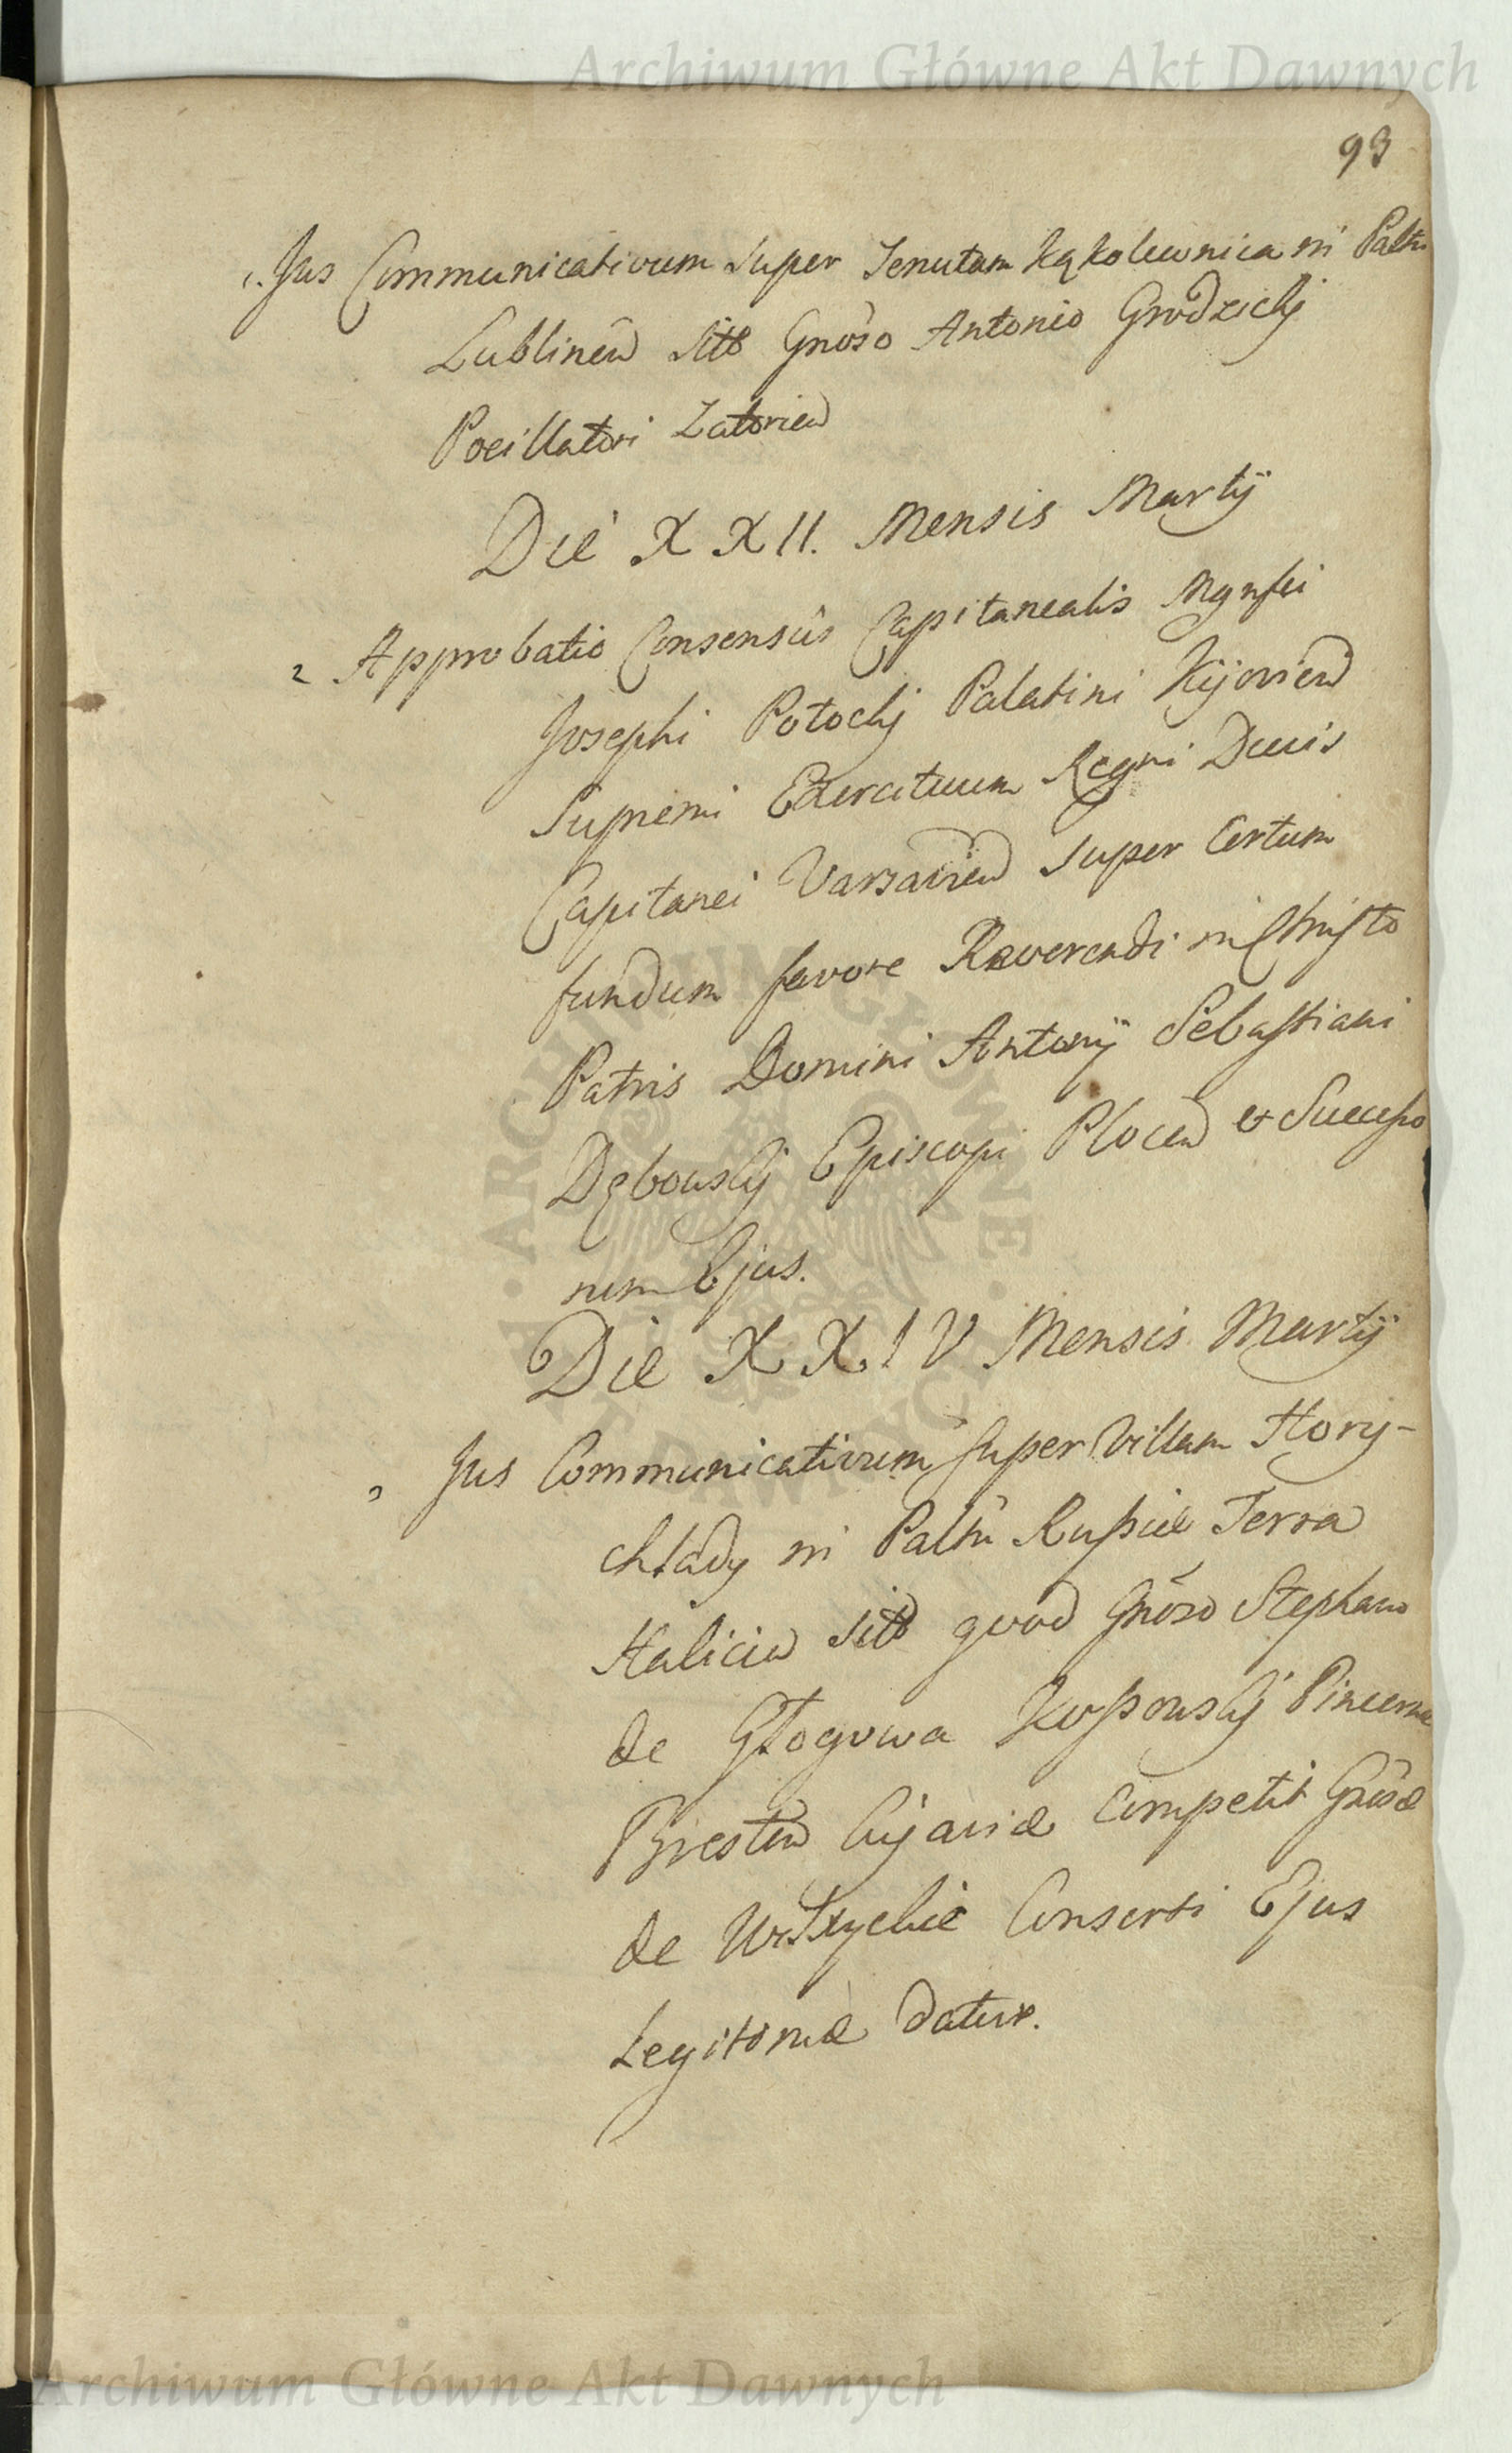 Archiwum Główne Akt Dawnych
93
1. Jus Communicativum super Tenutam Kąkolewnica in Paltu
Lublineñ sitō Gnoso Antonio Grodzickj
Pocillatori Zatorien
Die XXII. Mensis Martÿ
2 Approbatio Consensûs Capitanealis Mgnfci
Josephi Potockj Palatini Kijovien
Supremi Exercituum Regni Ducis
Capitanei Varsavien super Certum
fundum favore Reverendi in Christo
Patris Domini Antonÿ Sebastiani
Dębowskj Episcopi Plocen et Successo
rum Ejus.
Die XX.IV Mensis Martÿ
3 Jus Communicativum super Villam Hory-
chlady in Paltu Russiæ Terra
Halicien sitō quod Gnoso Stephano
de Głogowa Kossowskj Pincernæ
Bresten Cujaviæ Competit Gnosæ
de Consorti Ejus
Legitimæ datur.
ARCHIWUM GŁÓWNE AKT DAWNYCH
Archiwum Główne Akt Dawnych